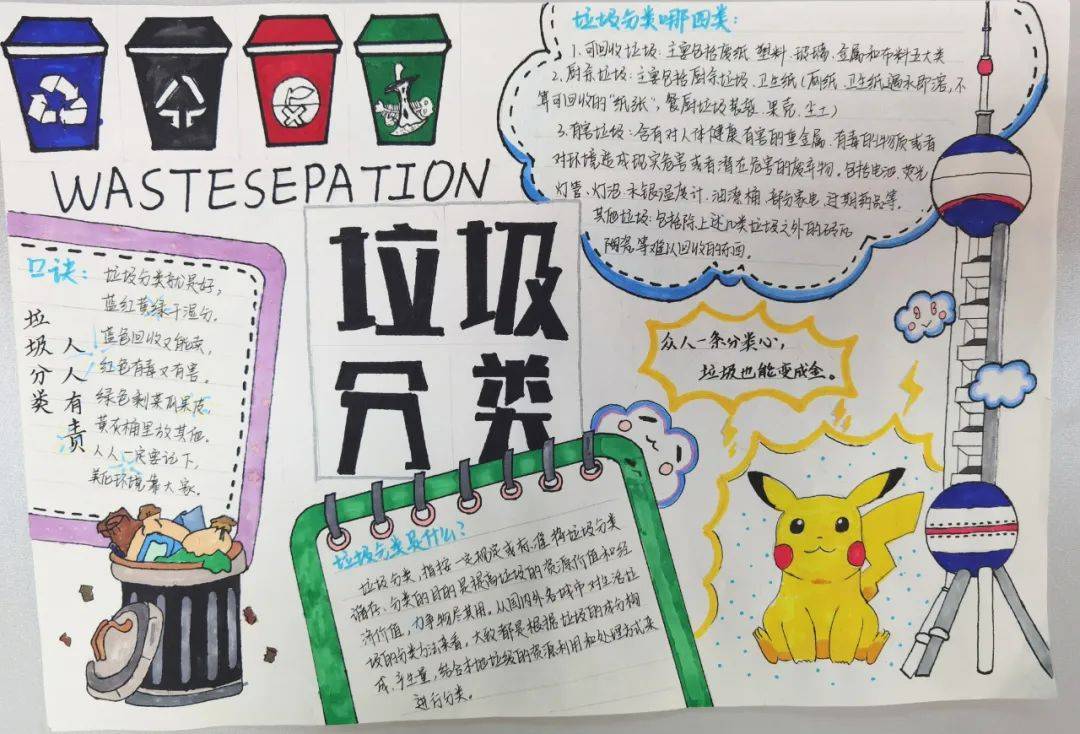 WASTESEPATION
垃圾
分类
垃圾分类哪四类：
1、可回收垃圾：主要包括废纸、塑料、玻璃、金属和布料五大类
2、厨余垃圾：主要包括厨余垃圾、卫生纸（厕纸、卫生纸遇水即溶，不
算可回收的“纸张”，餐厨垃圾装袋、果壳、尘土）
3、有害垃圾：含有对人体健康有害的重金属、有毒的物质或者
对环境造成现实危害或者潜在危害的废弃物。包括电池、荧光
灯管、灯泡、水银温度计、油漆桶、部分家电、过期药品等。
其他垃圾：包括除上述几类垃圾之外的砖瓦
陶瓷等难以回收的东西。
口诀：
垃圾分类
人人有责
垃圾分类就是好，
蓝红黄绿干湿分。
蓝色回收又能卖，
红色有毒又有害。
绿色剩菜瓜果皮，
黄灰桶里放其他。
人人一定要记下，
美化环境靠大家。
众人一条分类心，
垃圾也能变成金。
垃圾分类是什么？
垃圾分类，指按一定规定或标准将垃圾分类
储存、分类的目的是提高垃圾的资源价值和经
济价值，力争物尽其用。从国内外各城市对生活垃
圾的分类方法来看，大致都是根据垃圾的成分构
成、产生量，结合本地垃圾的资源利用和处理方式来
进行分类。